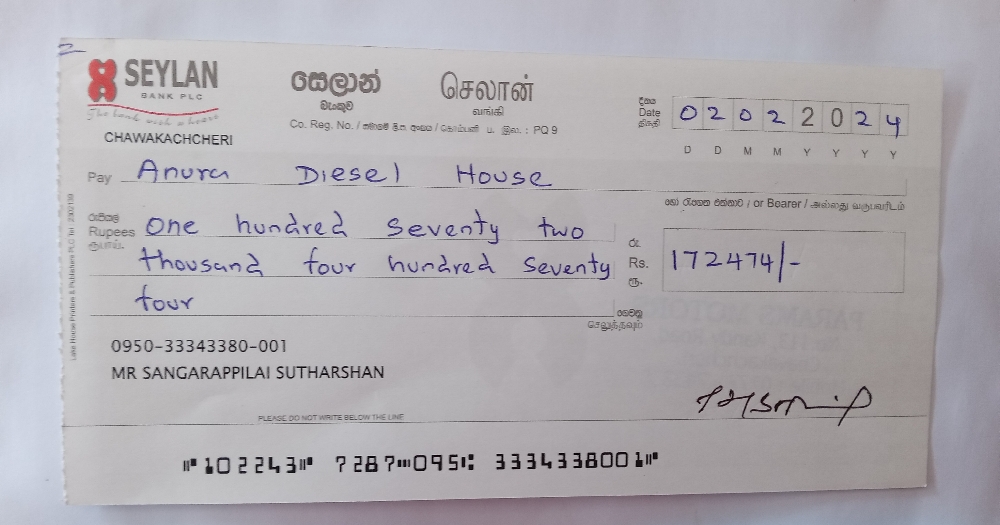 SEYLAN
BANK PLC
The bank with a heart
CHAWAKACHCHERI
සෙලාන්
බැංකුව
செலான்
வங்கி
Co. Reg. No. / සමාගම් ලි.ප. අංකය / கொம்பனி ப. இல. : PQ 9
දිනය
Date
திகதி
0 2 0 2 2 0 2 4
D D M M Y Y Y Y
Pay Anura Diesel House
හෝ රැගෙන එන්නාට / or Bearer / அல்லது வருபவரிடம்
රුපියල්
Rupees
ரூபாய்
One hundred seventy two
thousand four hundred seventy
four
රු.
Rs.
ரூ.
172474/-
ගෙවනු
செலுத்தவும்
0950-33343380-001
MR SANGARAPPILAI SUTHARSHAN
PLEASE DO NOT WRITE BELOW THE LINE
102243 7287 095 3334338001
Lake House Printers & Publishers PLC Tel : 2302139